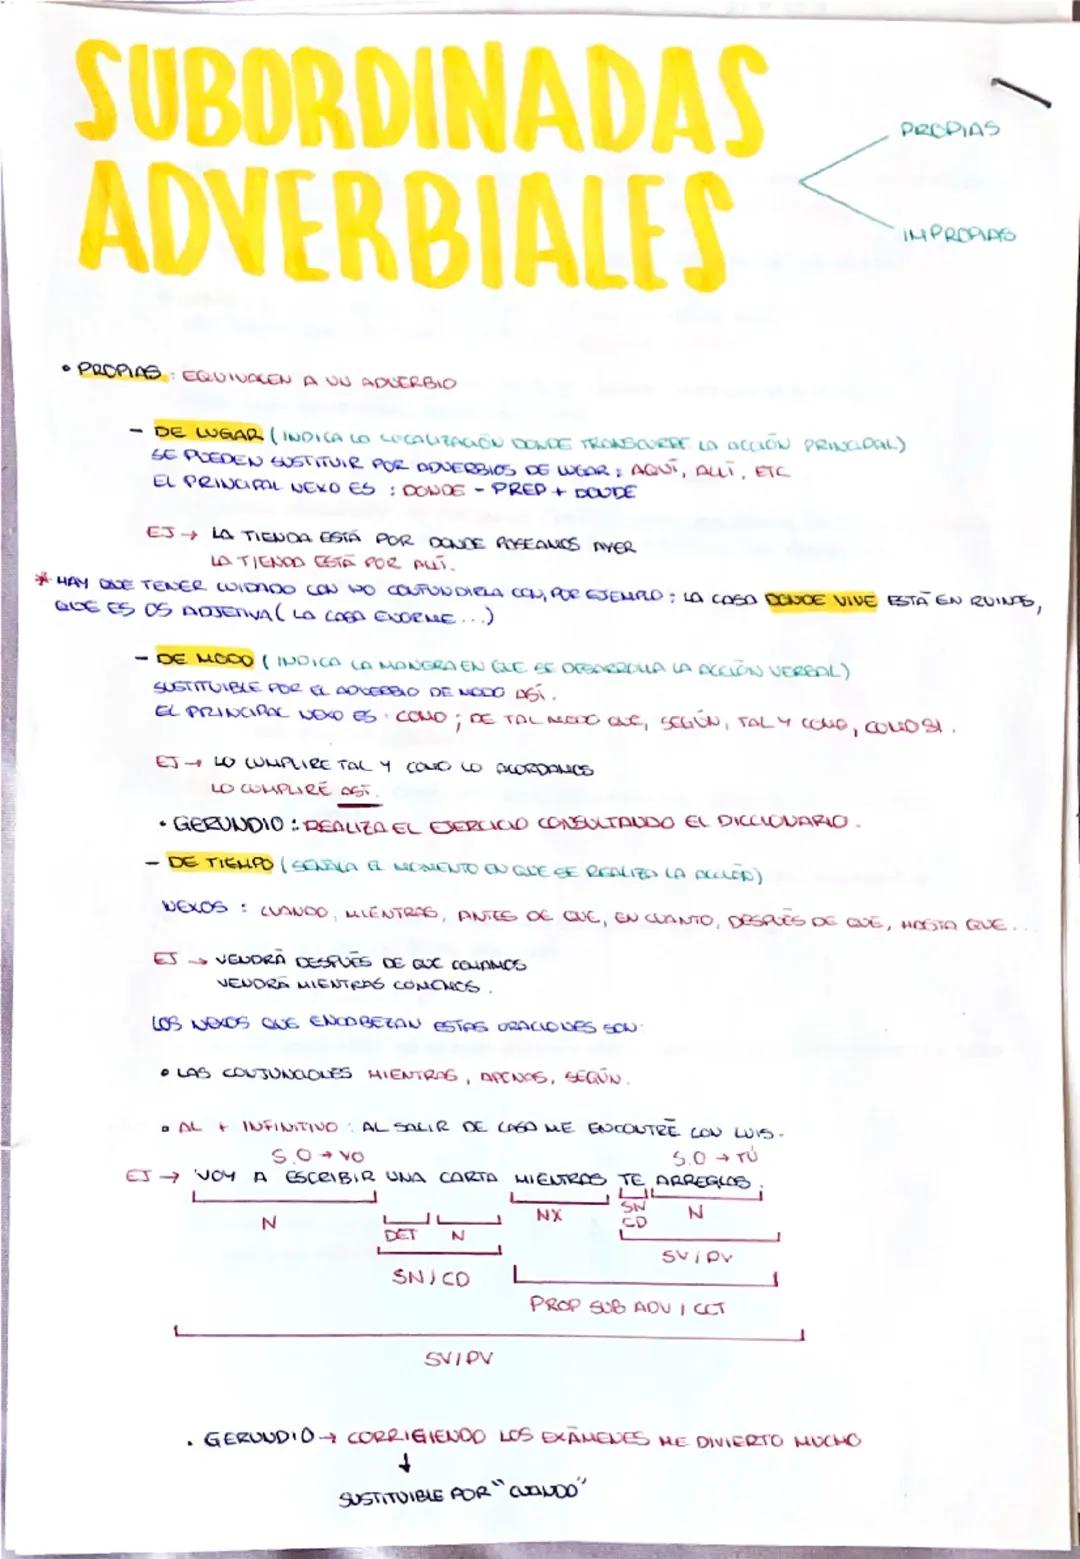 SUBORDINADAS
ADVERBIALES
PROPIAS
IMPROPIAS
• PROPIAS: EQUIVALEN A UN ADVERBIO
- DE LUGAR (INDICA LO LOCALIZACIÓN DONDE TRANSCURRE LA ACCIÓN PRINCIPAL)
SE PUEDEN SUSTITUIR POR ADVERBIOS DE LUGAR: AQUÍ, ALLÍ, ETC
EL PRINCIPAL NEXO ES: DONDE - PREP + DONDE
EJ → LA TIENDA ESTÁ POR DONDE PASEAMOS AYER
LA TIENDA ESTÁ POR ALLÍ.
* HAY QUE TENER CUIDADO CON NO CONFUNDIRLA CON, POR EJEMPLO: LA CASA DONDE VIVE ESTÁ EN RUINAS,
QUE ES OS ADJETIVA (LA CASA ENORME...)
- DE MODO (INDICA LA MANERA EN QUE SE DESARROLLA LA ACCIÓN VERBAL)
SUSTITUIBLE POR EL ADVERBIO DE MODO ASÍ.
EL PRINCIPAL NEXO ES: COMO; DE TAL MODO QUE, SEGÚN, TAL Y COMO, COMO SI.
EJ → LO CUMPLIRE TAL Y COMO LO ACORDAMOS
LO CUMPLIRÉ ASÍ.
• GERUNDIO: REALIZA EL EJERCICIO CONSULTANDO EL DICCIONARIO.
- DE TIEMPO (SEÑALA EL MOMENTO EN QUE SE REALIZA LA ACCIÓN)
NEXOS: CUANDO, MIENTRAS, ANTES DE QUE, EN CUANTO, DESPUÉS DE QUE, HASTA QUE...
EJ → VENDRÁ DESPUÉS DE QUE COMAMOS
VENDRÁ MIENTRAS COMEMOS.
LOS NEXOS QUE ENCABEZAN ESTAS ORACIONES SON:
• LAS CONJUNCIONES MIENTRAS, APENAS, SEGÚN.
• AL + INFINITIVO: AL SALIR DE CASA ME ENCONTRÉ CON LUIS.
S.O → YO S.O → TÚ
EJ → VOY A ESCRIBIR UNA CARTA MIENTRAS TE ARREGLAS.
N DET N NX SN CD N
SN/CD SV/PV
PROP SUB ADV / CCT
SV/PV
. GERUNDIO → CORRIGIENDO LOS EXÁMENES ME DIVIERTO MUCHO
↓
SUSTITUIBLE POR "CUANDO"